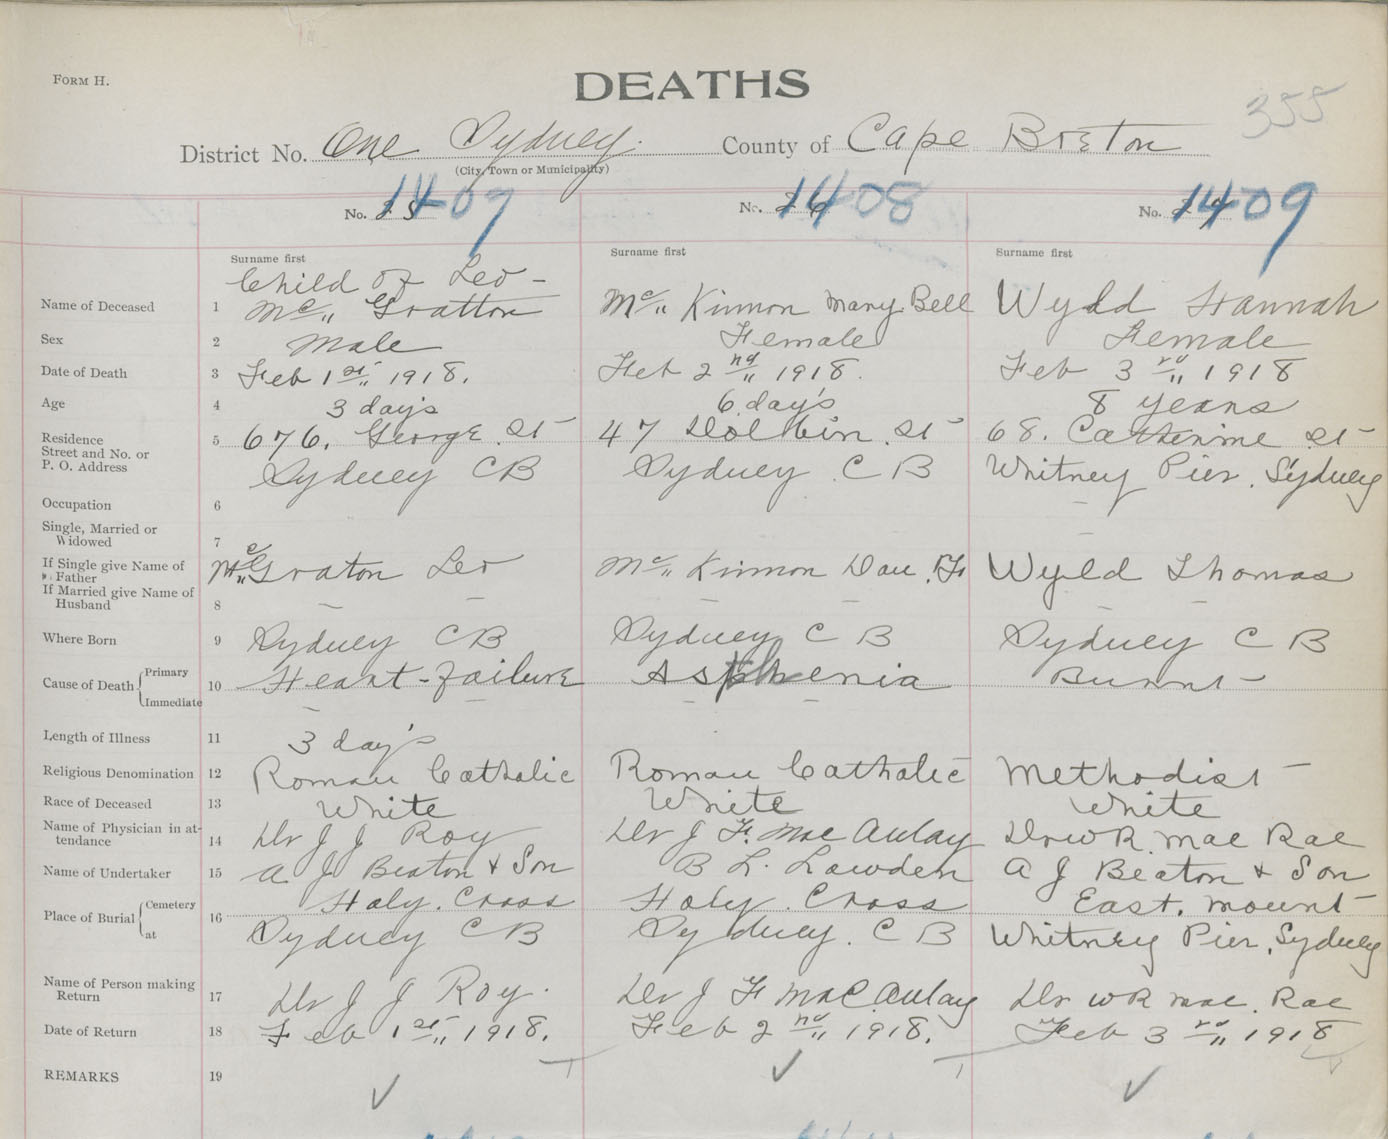 FORM H.
DEATHS
355
District No. One Sydney. County of Cape Breton
(City, Town or Municipality)
No. 25 1407 No. 26 1408 No. 1409
Surname first Surname first Surname first
Child of Leo -
Name of Deceased 1 Mc" Gratton Mc" Kinnon Mary Bell Wyld Hannah
Sex 2 Male Female Female
Date of Death 3 Feb 1st" 1918. Feb 2nd" 1918. Feb 3rd" 1918
Age 4 3 day's 6 day's 8 years
Residence 5 676. George St 47 Dolbin St 68. Catherine St
Street and No. or
P. O. Address Sydney C B Sydney C B Whitney Pier, Sydney
Occupation 6
Single, Married or
Widowed 7
If Single give Name of
Father Mc" Graton Leo Mc" Kinnon Dan. F Wyld Thomas
If Married give Name of
Husband 8
Where Born 9 Sydney C B Sydney C B Sydney C B
Cause of Death Primary 10 Heart-failure Asthenia Burnt
Immediate
Length of Illness 11 3 day's
Religious Denomination 12 Roman Catholic Roman Catholic Methodist
Race of Deceased 13 White White White
Name of Physician in at-
tendance 14 Dr J J Roy Dr J F. Mac Aulay Dr W R. Mac Rae
Name of Undertaker 15 A J Beaton & Son B L. Lowden A J Beaton & Son
Place of Burial Cemetery 16 Holy. Cross Holy. Cross East. Mount
at Sydney C B Sydney. C B Whitney Pier, Sydney
Name of Person making
Return 17 Dr J J Roy. Dr J F Mac. Aulay Dr W R Mac. Rae
Date of Return 18 Feb 1st" 1918. Feb 2nd" 1918. Feb 3rd" 1918
REMARKS 19